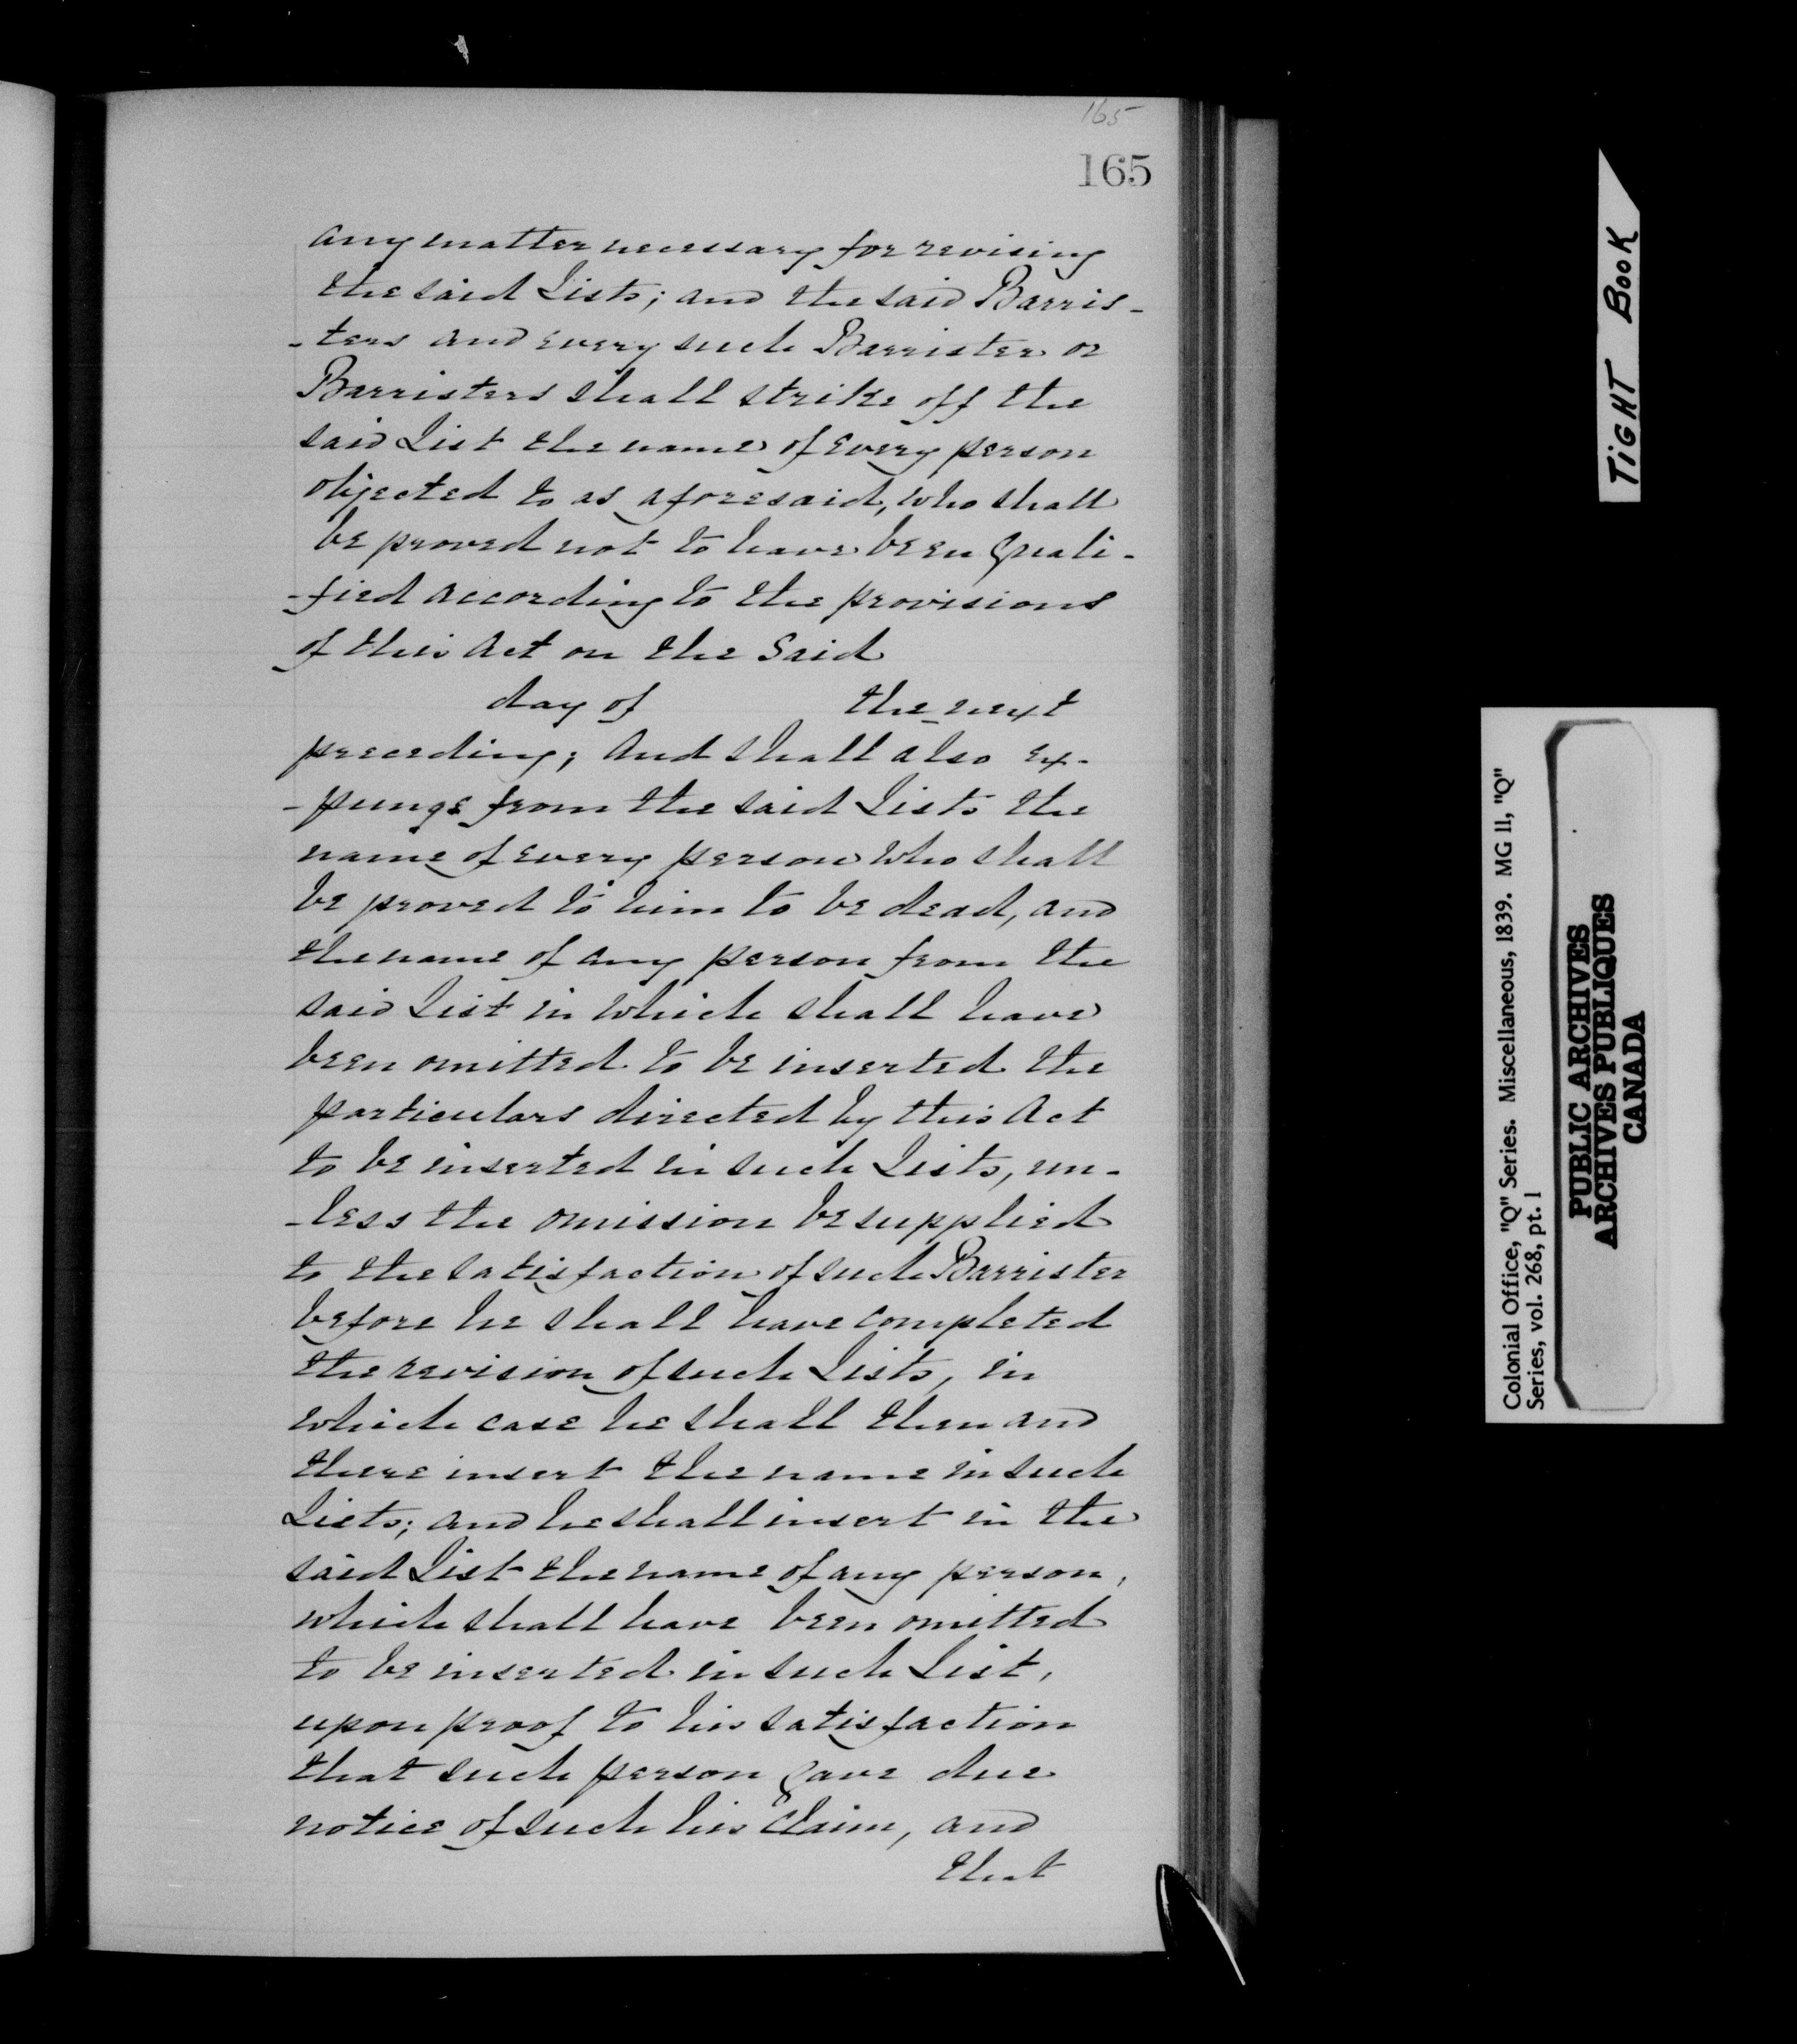 165
165
any matter necessary for revising
the said Lists; and the said Barris-
-ters and every such Barrister or
Barristers shall strike off the
said List the name of every person
objected to as aforesaid, who shall
be proved not to have been quali-
-fied according to the provisions
of this Act on the said
day of the next
preceding; and shall also ex-
-punge from the said Lists the
name of every person who shall
be proved to him to be dead, and
the name of any person from the
said List in which shall have
been omitted to be inserted the
particulars directed by this Act
to be inserted in such Lists, un-
-less the omission be supplied
to the satisfaction of such Barrister
before he shall have completed
the revision of such Lists, in
which case he shall then and
there insert the name in such
Lists; and he shall insert in the
said List the name of any person,
which shall have been omitted
to be inserted in such List,
upon proof to his satisfaction
that such person gave due
notice of such his claim, and
that
TiGHT BOOK
Colonial Office, "Q" Series. Miscellaneous, 1839. MG 11, "Q"
Series, vol. 268, pt. 1
PUBLIC ARCHIVES
ARCHIVES PUBLIQUES
CANADA